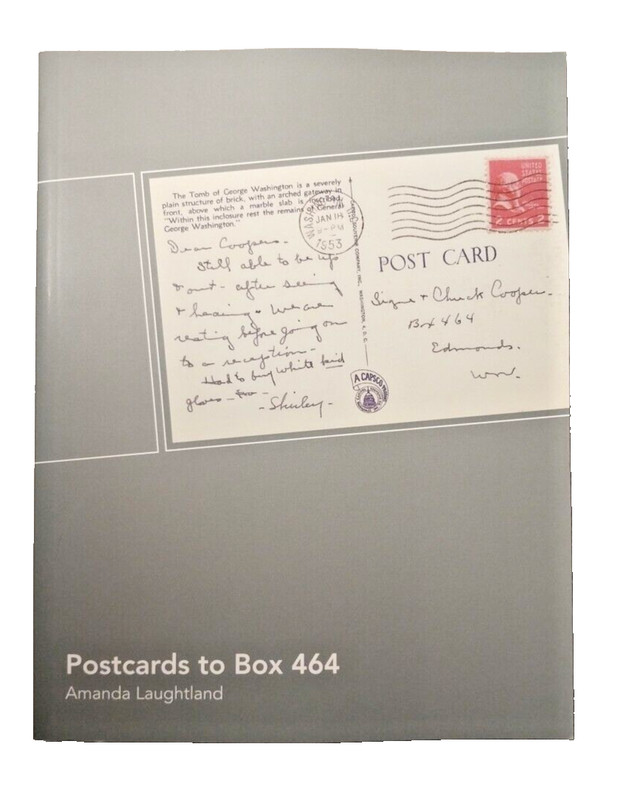 The Tomb of George Washington is a severely
plain structure of brick, with an arched gateway in
front, above which a marble slab is inscribed,
"Within this inclosure rest the remains of General
George Washington."
WASHINGTON
JAN 18
PM
1953
UNITED
STATES
POSTAGE
2 CENTS 2
Dear Coopers -
Still able to be up
& out - after seeing
& hearing. We are
resting before going on
to a reception -
Had to buy white kid
gloves - too -
- Shirley -
POST CARD
Signe & Chuck Cooper -
Box 464
Edmonds.
Wn.
A CAPSCO
Postcards to Box 464
Amanda Laughtland